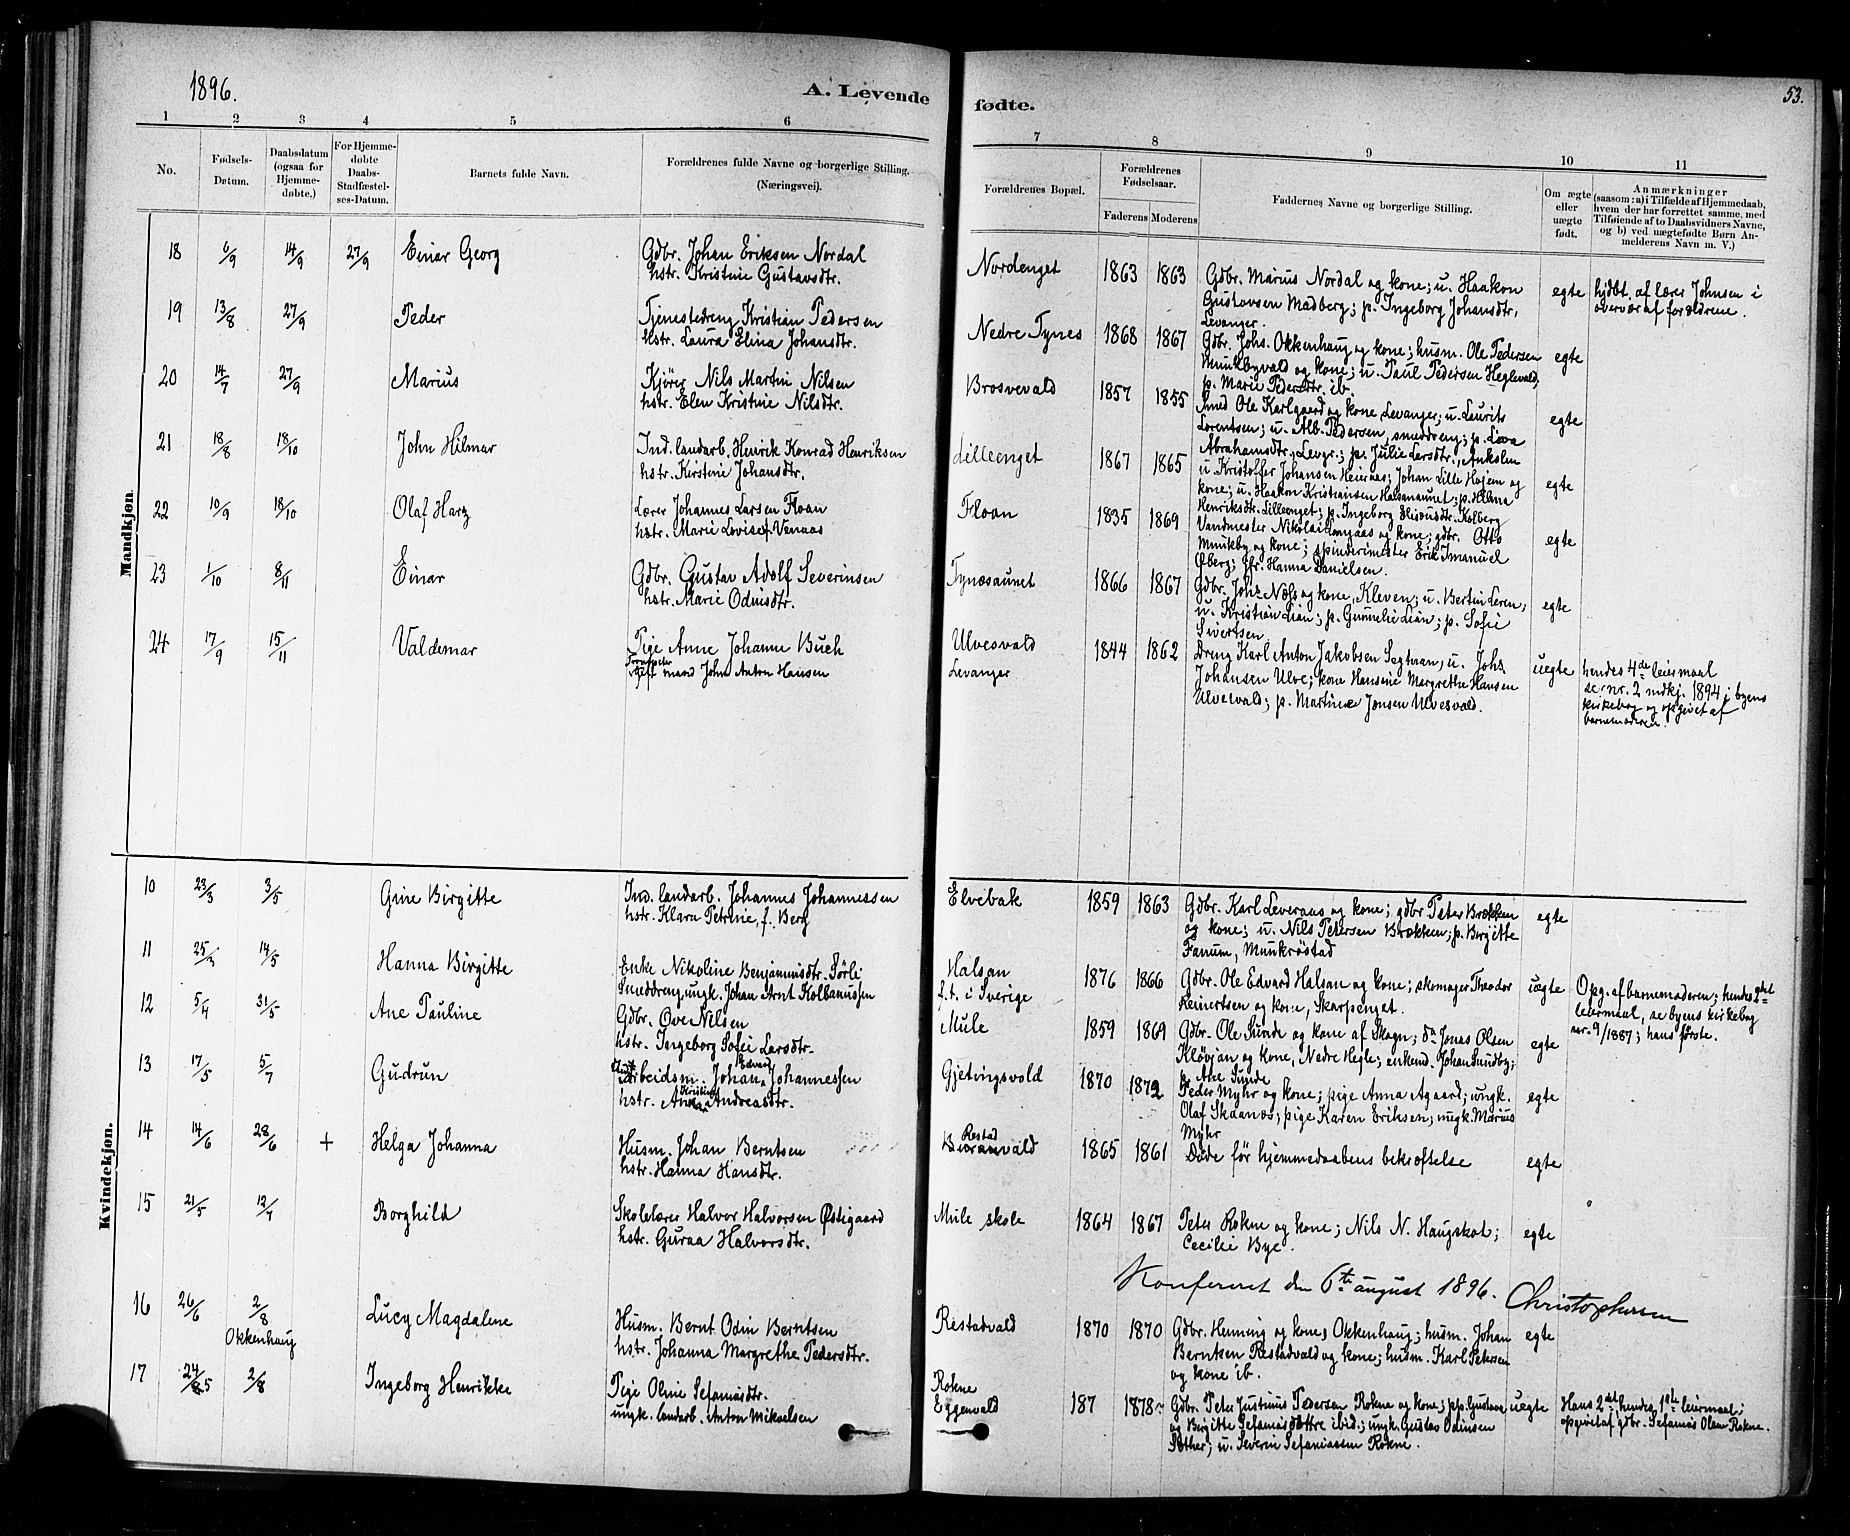 1896.
A. Levende fødte.
53.
1 2 3 4 5 6 7 8 9 10 11
No.
Fødsels-Datum.
Daabsdatum (ogsaa for Hjemmedøbte.)
For Hjemmedøbte Daabs-Stadfæstelses-Datum.
Barnets fulde Navn.
Forældrenes fulde Navne og borgerlige Stilling. (Næringsvei).
Forældrenes Bopæl.
Forældrenes Fødselsaar.
Faderens Moderens
Faddernes Navne og borgerlige Stilling.
Om ægte eller uægte født.
Anmærkninger (saasom: a) i Tilfælde af Hjemmedaab, hvem der har forrettet samme, med Tilføiende af to Daabsvidners Navne, og b) ved uægtefødte Børn Anmelderens Navn m. V.)
Mandkjøn.
18 6/9 14/9 27/9 Einar Georg
Gdbr. Johan Eriksen Nordal
hstr. Kristine Gustavsdtr.
Nordenget 1863 1863
Gdbr. Marius Nordal og kone; u. Haakon
Gustavsen Madberg; p. Ingeborg Johansdtr,
Levanger.
egte
hjdbt. af lærer Johnsen i
overvær af forældrene.
19 13/8 27/9 Peder
Tjenestedreng Kristian Pedersen
hstr. Laura Elina Johansdtr.
Nedre Tynes 1868 1867
Gdbr. Johs. Okkenhaug og kone; husm. Ole Pedersen
Munkbyvald og kone; u. Paul Pedersen Heglevald;
p. Marie Pedersdtr. ib.
egte
20 14/7 27/9 Marius
Kjører Nils Martin Nilsen
hstr. Elen Kristine Nilsdtr.
Brosvevald 1857 1855
Smed Ole Karlgaard og kone Levanger; u. Laurits
Lorentsen; u. Alb. Pedersen, smeddreng; p. Lova
Abrahamsdtr., Levgr.; p. Julie Larsdtr., Ankolm
egte
21 18/8 18/10 John Hilmar
Ind. landarb. Henrik Konrad Henriksen
hstr. Kirstine Johansdtr.
Lilleenget 1867 1865
u Kristoffer Johansen Heieraas; Johan Lille Hojem og
kone; u. Haakon Kristiansen Halsanaunet; p. Helena
Henriksdtr. Lilleenget; p. Ingeborg Kolberg
egte
22 10/9 18/10 Olaf Harz
Lærer Johannes Larsen Floan
hstr. Marie Lovise f. Vennaas
Floan 1835 1869
Vandmester Nikolai Langaas og kone; gdbr. Otto
Munkby og kone; spinderimester Erik Imanuel
Øberg; fr. Hanna Danielsen.
egte
23 1/10 8/11 Einar
Gdbr. Gustav Adolf Severinsen
hstr. Marie Odinsdtr.
Tynæsaunet 1866 1867
Gdbr. Johs. Næss og kone, Kleven; u. Bertin Leren;
u. Kristian Lian; p. Gunnelie Lian; p. Sofie
Sivertsen
egte
24 17/9 15/11 Valdemar
Pige Anne Johanne Buch
gift mand John Anton Hansen
Ulvesvald
Levanger
1844 1862
Dreng Karl Anton Jakobsen Segtnan, u. Johs.
Johansen Ulve; kone Hansine Margrethe Hansen
Ulvesvald; p. Martine Jonsen Ulvesvald.
uegte
hendes 4de leiermaal
se nr. 2 mdkj. 1894 i byens
kirkebog og opgivet af
barnemoderen.
Kvindekjøn.
10 23/3 3/5 Gine Birgitte
Ind. landarb. Johannes Johannessen
hstr. Klara Petrine, f. Berg
Elvebak 1859 1863
Gdbr. Karl Leveraas og kone; gdbr Peter Brækken
og kone; u. Nils Petersen Brækken; p. Birgitte
Fanum, Munkrøstad
egte
11 25/3 14/5 Hanna Birgitte
Enke Nikoline Benjaminsdtr. Førli
Smeddreng, ungk. Johan Arnt Kolbanussen
Halsan
f.t. i Sverige
1876 1866
Gdbr. Ole Edvard Halsan og kone; skomager Theodor
Reinertsen og kone, Skarpenget.
uægte
Opg. af barnemoderen; hendes 2det
leiermaal, se byens kirkebog
nr. 9/1887; hans første.
12 5/4 31/5 Ane Pauline
Gdbr. Ove Nilsen
hstr. Ingeborg Sofie Larsdtr.
Mule 1859 1869
Gdbr. Ole Sunde og kone af Skogn; do Jonas Olsen
Kløvjan og kone, Nedre Hegle; enkemd. Johan Sundby;
p. Ane Sunde
egte
13 17/5 5/7 Gudrun
Arbeidsm. Johan Edvard Johannessen
hstr. Anna Kristine Andreasdtr.
Gjetingsvold 1870 1872
Peder Myhr og kone; pige Anna Agaard; ungk.
Olaf Skaanæs; pige Karen Eriksen; ungk. Marius
Myhr
egte
14 14/6 28/6 + Helga Johanna
Husm. Johan Berntsen
hstr. Hanna Hansdtr.
Restad vald 1865 1861
Døde før hjemmedaabens bekræftelse
egte
15 21/5 12/7 Borghild
Skolelærer Halvor Halvorsen Østigaard
hstr. Guraa Halvorsdtr.
Mule skole 1864 1867
Peter Rokne og kone; Nils N. Haugskot;
Cecilie Bye.
egte
Konfereret den 6te august 1896. Christophersen
16 26/6 2/8 Okkenhaug Lucy Magdalene
Husm. Bernt Odin Berntsen
hstr. Johanna Margrethe Pedersdtr.
Restadvald 1870 1870
Gdbr. Henning og kone, Okkenhaug; husm. Johan
Berntsen Restadvald og kone; husm. Karl Petersen
og kone ib.
egte
17 24/5 2/8 Ingeborg Henrikke
Pige Oline Sefaniasdtr.
ungk. landarb. Anton Mikaelsen
Rokne
Eggenvald
187 1878
Gdbr. Peter Justinus Pedersen Rokne og kone; pp. Gustava
og Birgitte Sefaniasdøttre ibid; ungk. Gustav Odinsen
Sæther; u. Severin Sefaniassen Rokne.
uegte
Hans 2det, hendes 1ste leiermaal;
opgivet af gdbr. Sefanias Olsen Rokne.